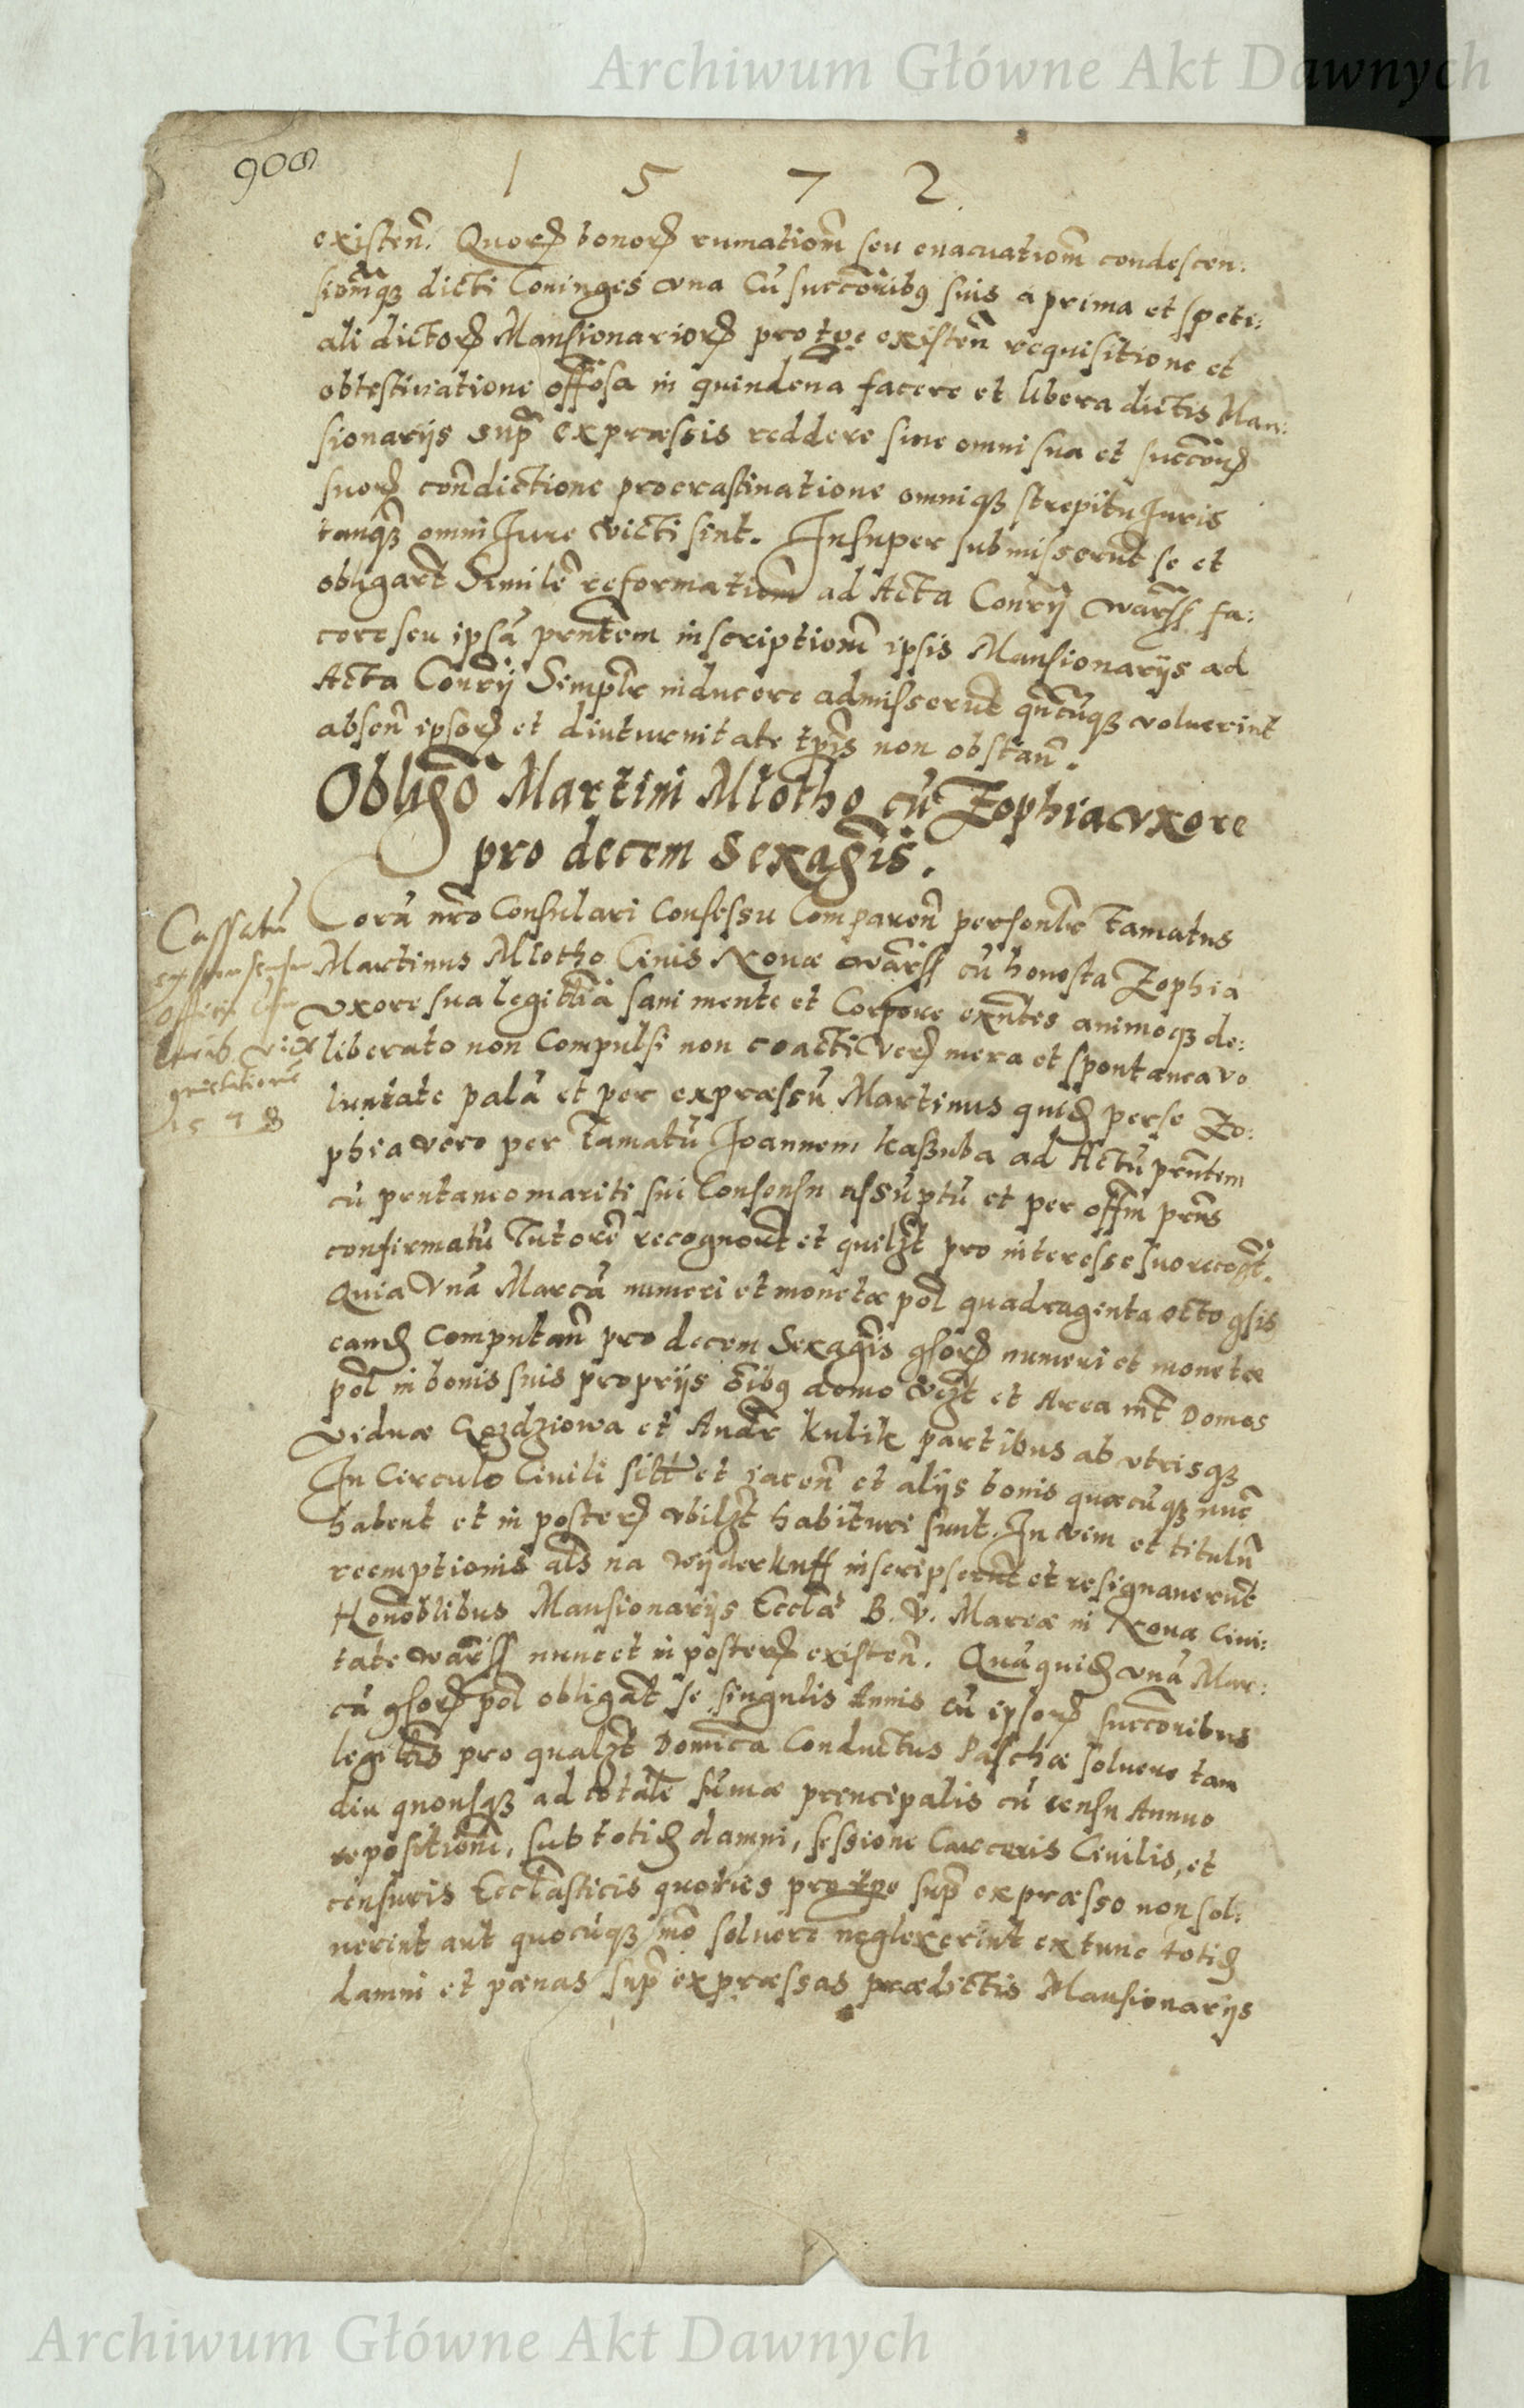 Archiwum Główne Akt Dawnych
908
1 5 7 2.
existen̄. Quorꝝ bonorꝝ rumationē seu evacuationē condescen:
sionēqꝫ dicti Coninges vna Cū succōribꝰ suis a prima et speti:
ali dictorꝝ Mansionariorꝝ pro tpe existen̄ requisitione et
obtestivatione offōsa in quindena facere et libera dictis Man:
sionarijs supª expræssis reddere sine omni sua et succōrꝝ
suorꝝ con̄dictione procrastinatione omniqꝫ strepitu Juris
tanqꝫ̄ omni Jure victi sint. Insuper submisserūt se et
obligarūt Similē reformationē ad Acta Con̄rij warss̄ fa:
cere seu ipsā prn̄tem inscriptionē ipsis Mansionarijs ad
Acta Con̄rij Simplr̄ inducere admisserūt qn̄cūqꝫ voluerint
absen̄ ipsorꝝ et diuturnitate tp̄is non obstan̄.
Obligō Martini Mlotho cū Zophia vxore
pro decem Sexagīs.
Corā nr̄o Consulari Consessu Comparen̄ personlr̄ famatus
Martinus Mlotho Ciuis Nouæ warss̄ cū honesta Zophia
vxore sua legittīa sani mente et Corpore exn̄tes animoqꝫ de:
liberato non Compulsi non coacti verꝝ mera et spontanea vo
luntate palā et per expræssū Martinus quidꝫ per se Zo:
phia vero per famatū Joannem kaßuba ad Actū prn̄tem
cū prntaneo mariti sui Consensu assūptū et per offm̄ prn̄s
confirmatū Tutorē recognorūt et quilꝫt pro interesse suo recogt̄.
Quia vnā Marcā numeri et monetæ pol̄ quadragenta octo gsis
eandꝫ Computan̄ pro decem Sexagīs gsorꝝ numeri et monetæ
pol̄ in bonis suis proprijs oībꝰ domo vꝫt et Area int̄ Domos
viduæ Gozdziowa et Andr̄ kulik partibus ab vtrisqꝫ
In Circulo Ciuili sitt̄ et iacen̄ et alijs bonis quæcūqꝫ nūc
habent et in posterꝝ vbilꝫt habituri sunt. In vim et titulū
reemptionis al̄s na wijderkuff inscripserūt et resignauerūt
Honōblibus Mansionarijs Eccl̄æ B. V. Mariæ in Noua Ciui:
tate warss̄ nunc et in posterꝝ existen̄. Quā quidꝫ vnā Mar:
cā gsorꝝ pol̄ obligāt se singulis Annis cū ipsorꝝ succōribus
legittīs pro qualꝫt Domīca Conductus Paschæ soluere tam
diu quousqꝫ ad totalē sūmæ principalis cū censu Annuo
repositionē, sub totidꝫ damni, sessione Carceris Ciuilis, et
censuris Eccl̄asticis quoties pro tpe supª expræsso non sol:
uerint aut quocūqꝫ mō soluere neglexerint ex tunc totidꝫ
damni et pænas supª expræssas prædictis Mansionarijs
Cassatū
ex consensu
1578
Archiwum Główne Akt Dawnych